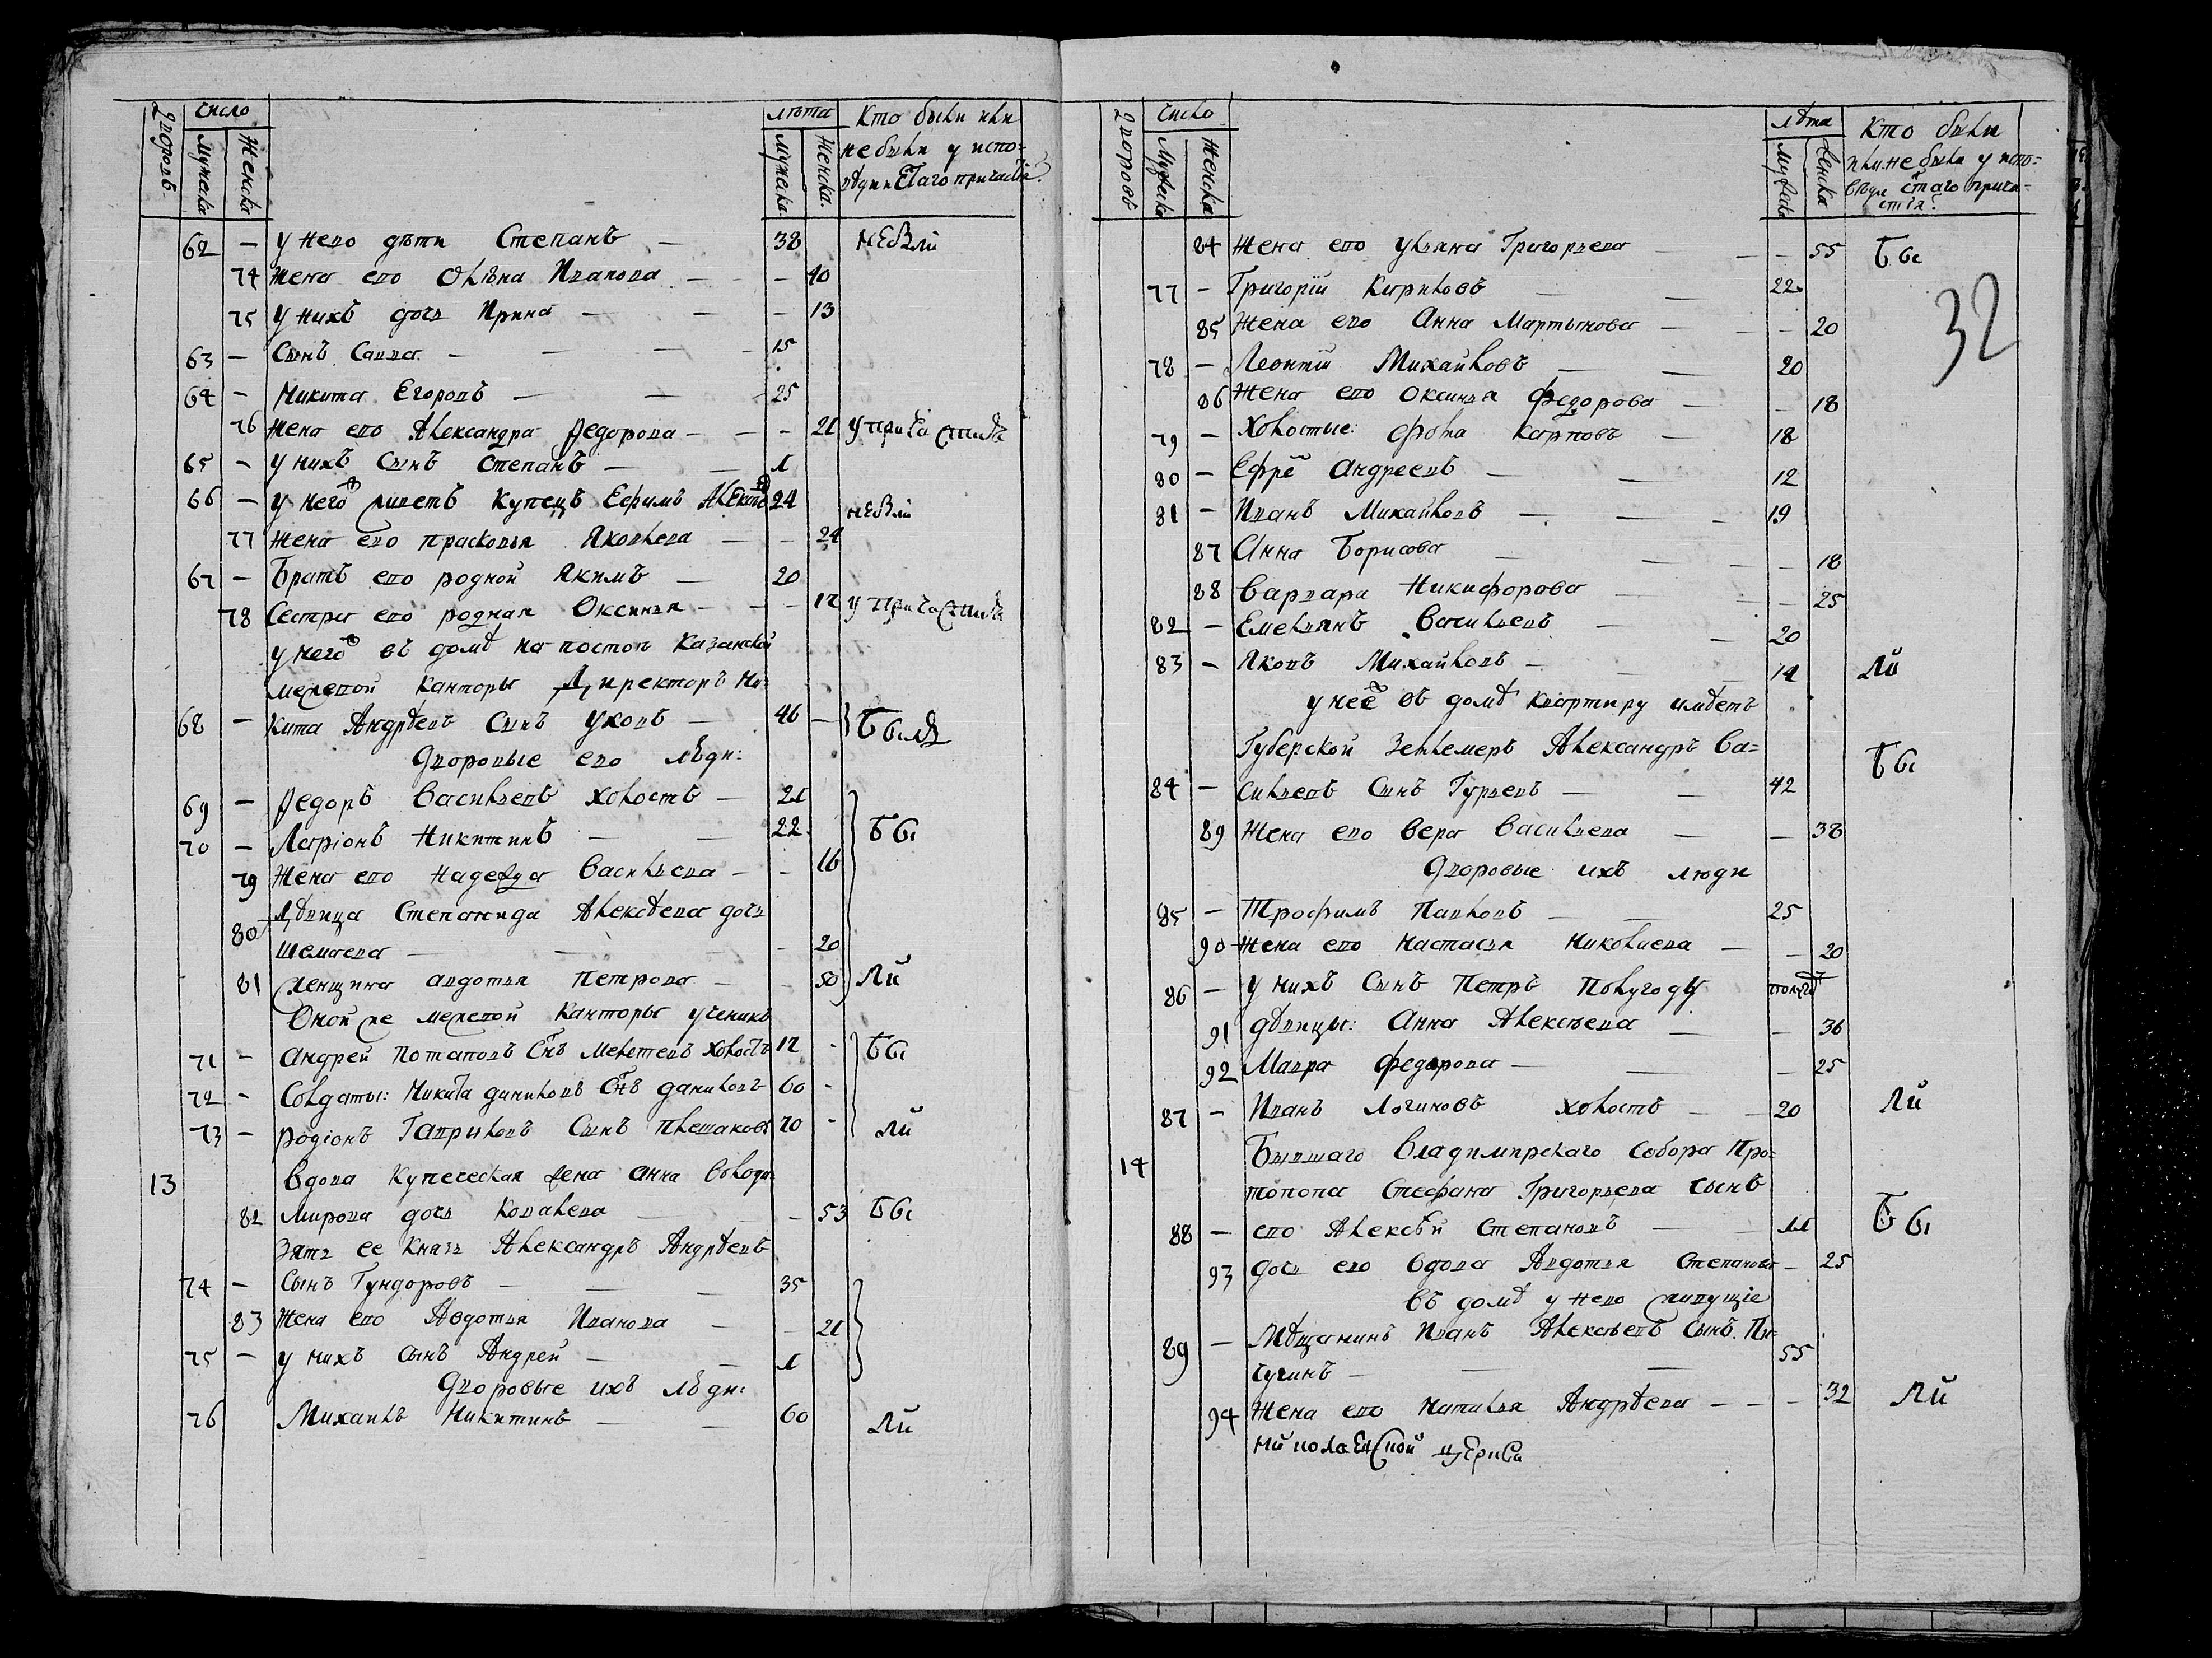 дворовъ
число
мужеска
женска
лѣта
мужеска
женска.
Кто были или
не были у испо-
вѣди и Стаго причастія?
62 — у него дѣти Степанъ — 38 не были
74 жена его Олѣна Иванова — — 40
75 у нихъ дочь Ирина — — — 13
63 — Сынъ Савва — — — 15
64 — Никита Егоровъ — — 25
76 жена его Александра Федорова — — — 21 у причастія
65 — у нихъ сынъ Степанъ — — 1
66 — у него ж живетъ купецъ Ефимъ 24 не были
77 жена его Прасковья Яковлева — — 24
67 — Братъ его родной Якимъ — 20
78 Сестра его родная Оксинья — — — 12 у причастія
у него ж въ домѣ на постоѣ Казанской
межевой канторы Директоръ Ни-
68 — кита Андрѣевъ сынъ Уковъ — 46 — были
Дворовые его люди:
69 — Федоръ Васильевъ холостъ — 21
70 — Ларіонъ Никитинъ — — 22 Бы
79 жена его Надежда Васильева — — 16
80 Дѣвица Степанида Алексѣева дочь
Шемаева — — — — 20
81 женщина Авдотья Петрова — — 50 ли
Оной же межевой канторы ученикъ
71 — Андрей Потаповъ Снъ Мелетевъ холостъ 12 - Бы
72 - Солдаты: Никита Даниловъ Снъ Даниловъ 60 -
73 — Родіонъ Гавриловъ Сынъ Плешаковъ 70 - ли
13 Вдова купеческая жена Анна Володи-
82 мирова дочь Ковалева — — 53 Бы
Зять ее Князь Александръ Андрѣевъ
74 — Сынъ Гундоровъ — — — 35
83 Жена его Авдотья Иванова — — 21
75 — у нихъ сынъ Андрей — — 1
Дворовые ихъ люди:
76 Михаилъ Никитинъ — — 60 ли
дворовъ
число
мужеска
женска
лѣта
мужеска
женска
Кто были
или не были у испо-
вѣди стаго прича-
стія?
32
84 Жена его Ульяна Григорьева — — — 55 Бы
77 — Григорій Кириловъ — — 22
85 Жена его Анна Мартынова — — — 20
78 — Леонтій Михайловъ — — 20
86 Жена его Оксинья Федорова — — 18
79 — Холостые: Фома Карповъ — 18
80 — Ефре Андреевъ — — 12
81 — Иванъ Михайловъ — — — 19
87 Анна Борисова — — — — 18
88 Варвара Никифорова — — — 25
82 — Емельянъ Васильевъ — — 20
83 — Яковъ Михайловъ — — 14 ли
у неѣ ж въ домѣ квартиру имѣетъ
Губерской Землемеръ Александръ Ва-
84 — сильевъ Сынъ Гурьевъ — — 42 Бы
89 Жена его Вера Васильева — — 38
Дворовые ихъ люди
85 — Трофимъ Павловъ — — 25
90 Жена его Настасья Николаева — — 20
86 — у нихъ Сынъ Петръ Полугоду
91 дѣвицы: Анна Алексѣева — — 36
92 Мавра Федорова — — — 25
87 — Иванъ Логиновъ холостъ — — 20 ли
14 Бывшаго Владимирскаго Собора Про-
топопа Стефана Григорьева сынъ
88 — его Алексѣй Степановъ — — 11 Бы
93 дочь его вдова Авдотья Степанова — 25
въ домѣ у него живущіе
89 — Мѣщанинъ Иванъ Алексѣевъ Сынъ Пи-
чугинъ — — — 55
94 Жена его Наталья Андрѣева — — — 32 ли